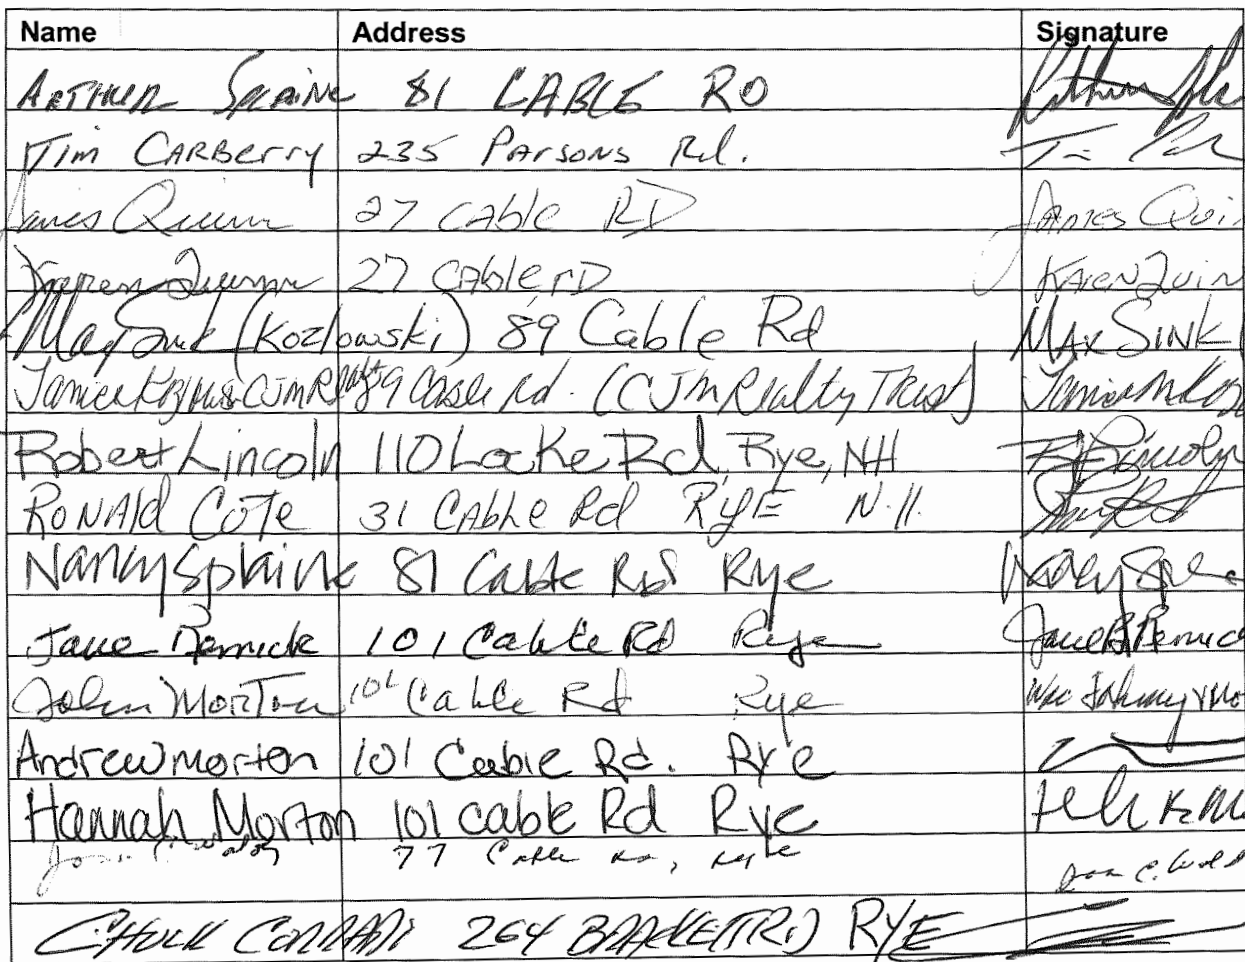 Name Address Signature
Arthur Splaine 81 CABLE RD
Tim CARBerry 235 PArsons Rd.
James Quinn 27 CAble RD James Quin
Karen Quinn 27 CAble rD KAren Quin
Max Sink (Kozlowski) 89 Cable Rd MAx SINK
Janice 89 Cable Rd. (CJM Realty Trust)
Robert Lincoln 110 Locke Rd, Rye, NH R Lincoln
RONAld COTe 31 CAble Rd RYE N.H.
Nancy Splaine 81 Cable Rd Rye Nancy
Jane 101 Cable Rd Rye Jane B
John MorTon 101 Cable Rd Rye
Andrew Morton 101 Cable Rd. Rye
Hannah Morton 101 cable Rd Rye
77 Cable Rd, Rye
CHUCK 264 BRACKETT RD RYE